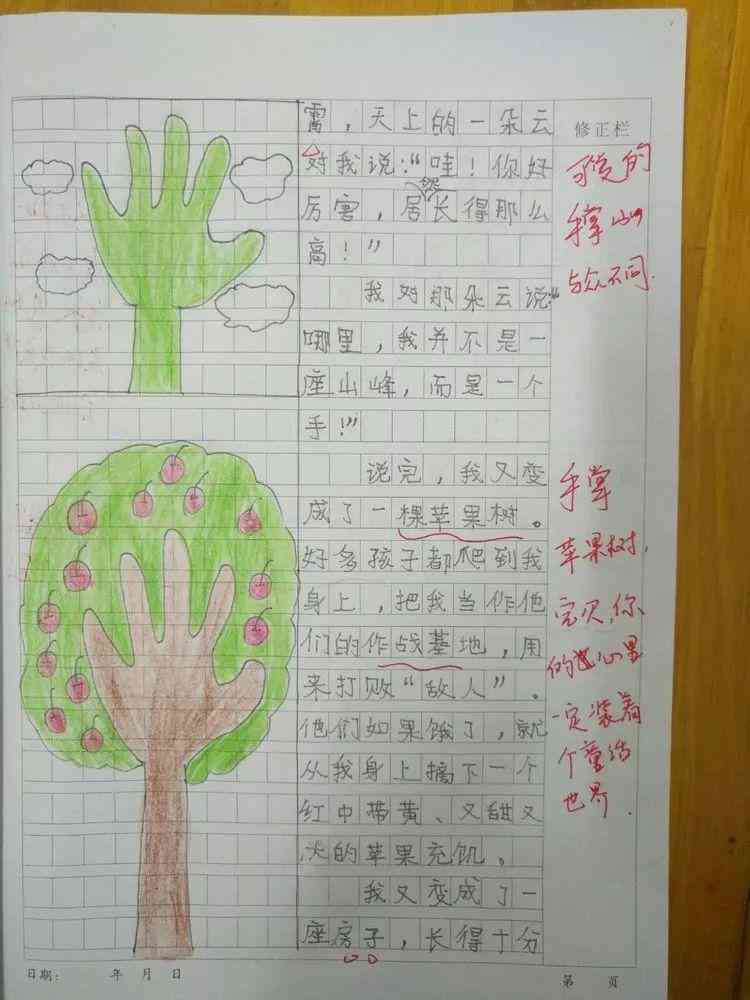 雷，天上的一朵云
修正栏
对我说：“哇！你好
厉害，居然长得那么
高！”
我对那朵云说“
哪里，我并不是一
座山峰，而是一个
手！”
说完，我又变
成了一棵苹果树。
好多孩子都爬到我
身上，把我当作他
们的作战基地，用
来打败“敌人”。
他们如果饿了，就
从我身上摘下一个
红中带黄、又甜又
大的苹果充饥。
我又变成了一
座房子，长得十分
可爱的
手掌山
与众不同.
手掌
苹果树,
宝贝,你
的心里
一定装着
个童话
世界.
日期： 年 月 日
第 页